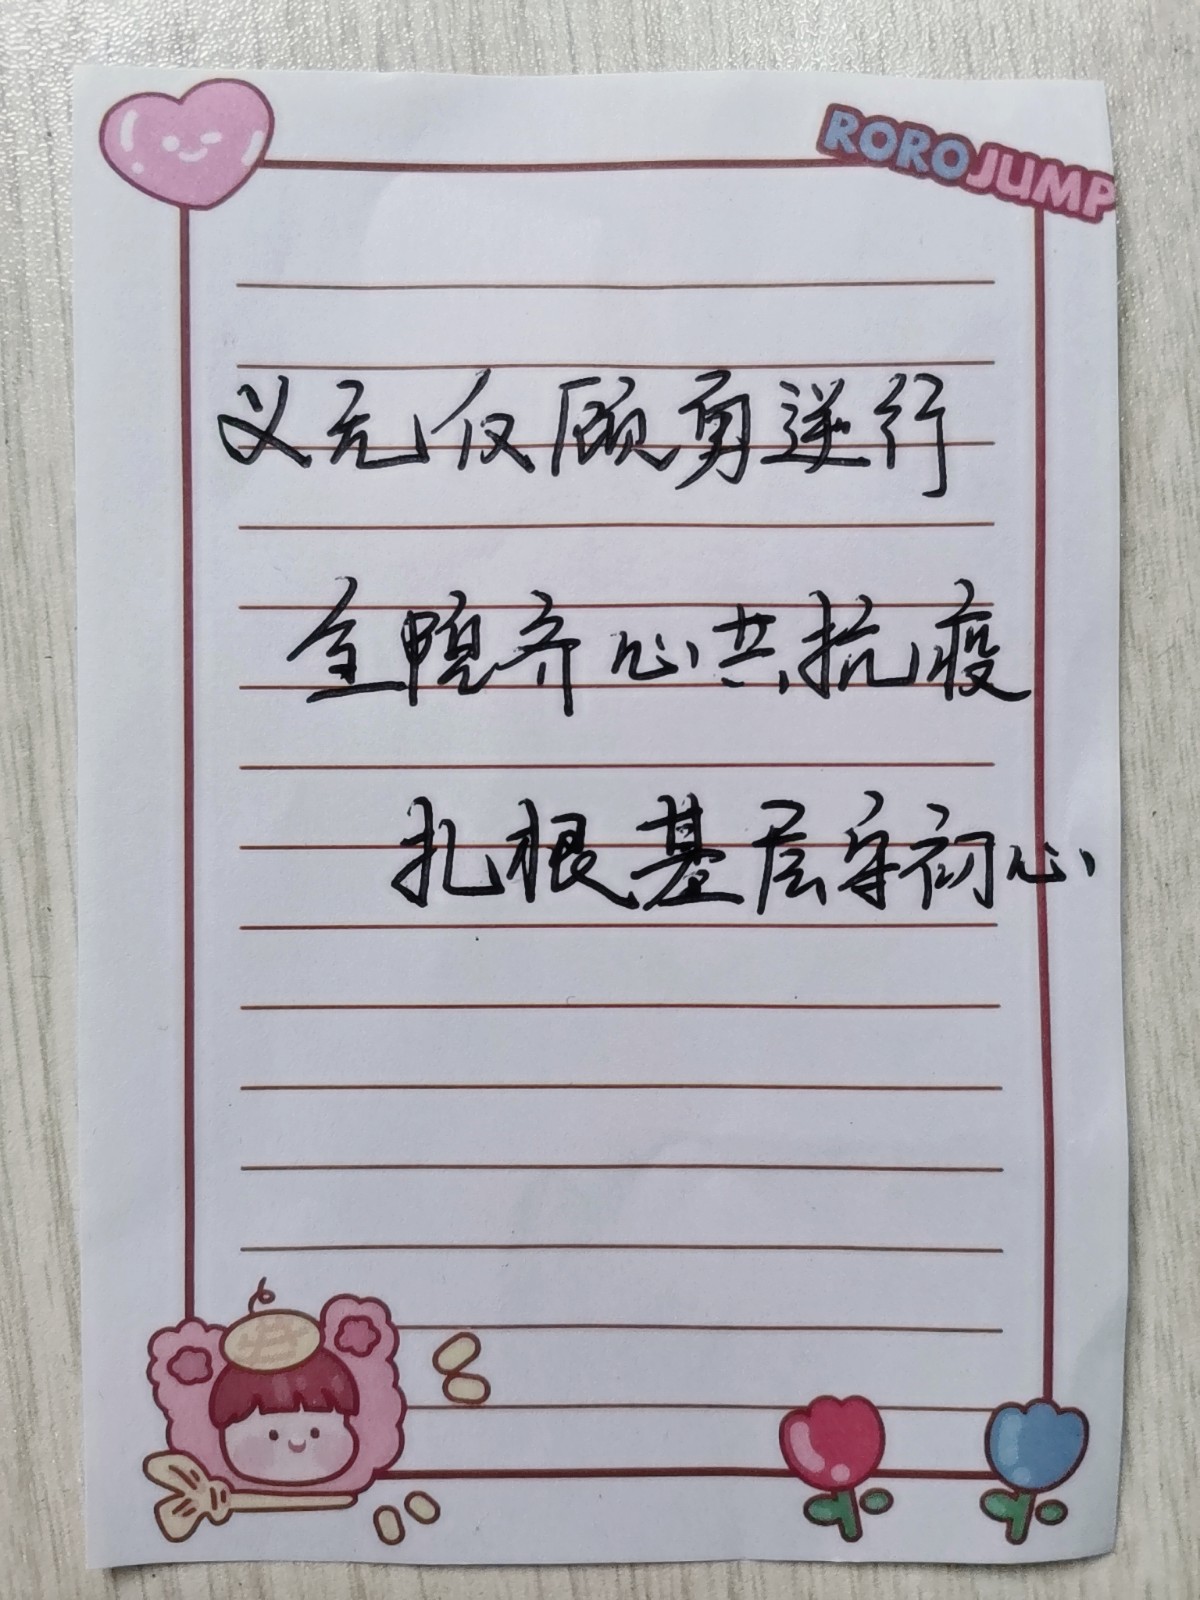 ROROJUMP
义无仅顾勇逆行
全齐心共抗疫
扎根基层守初心